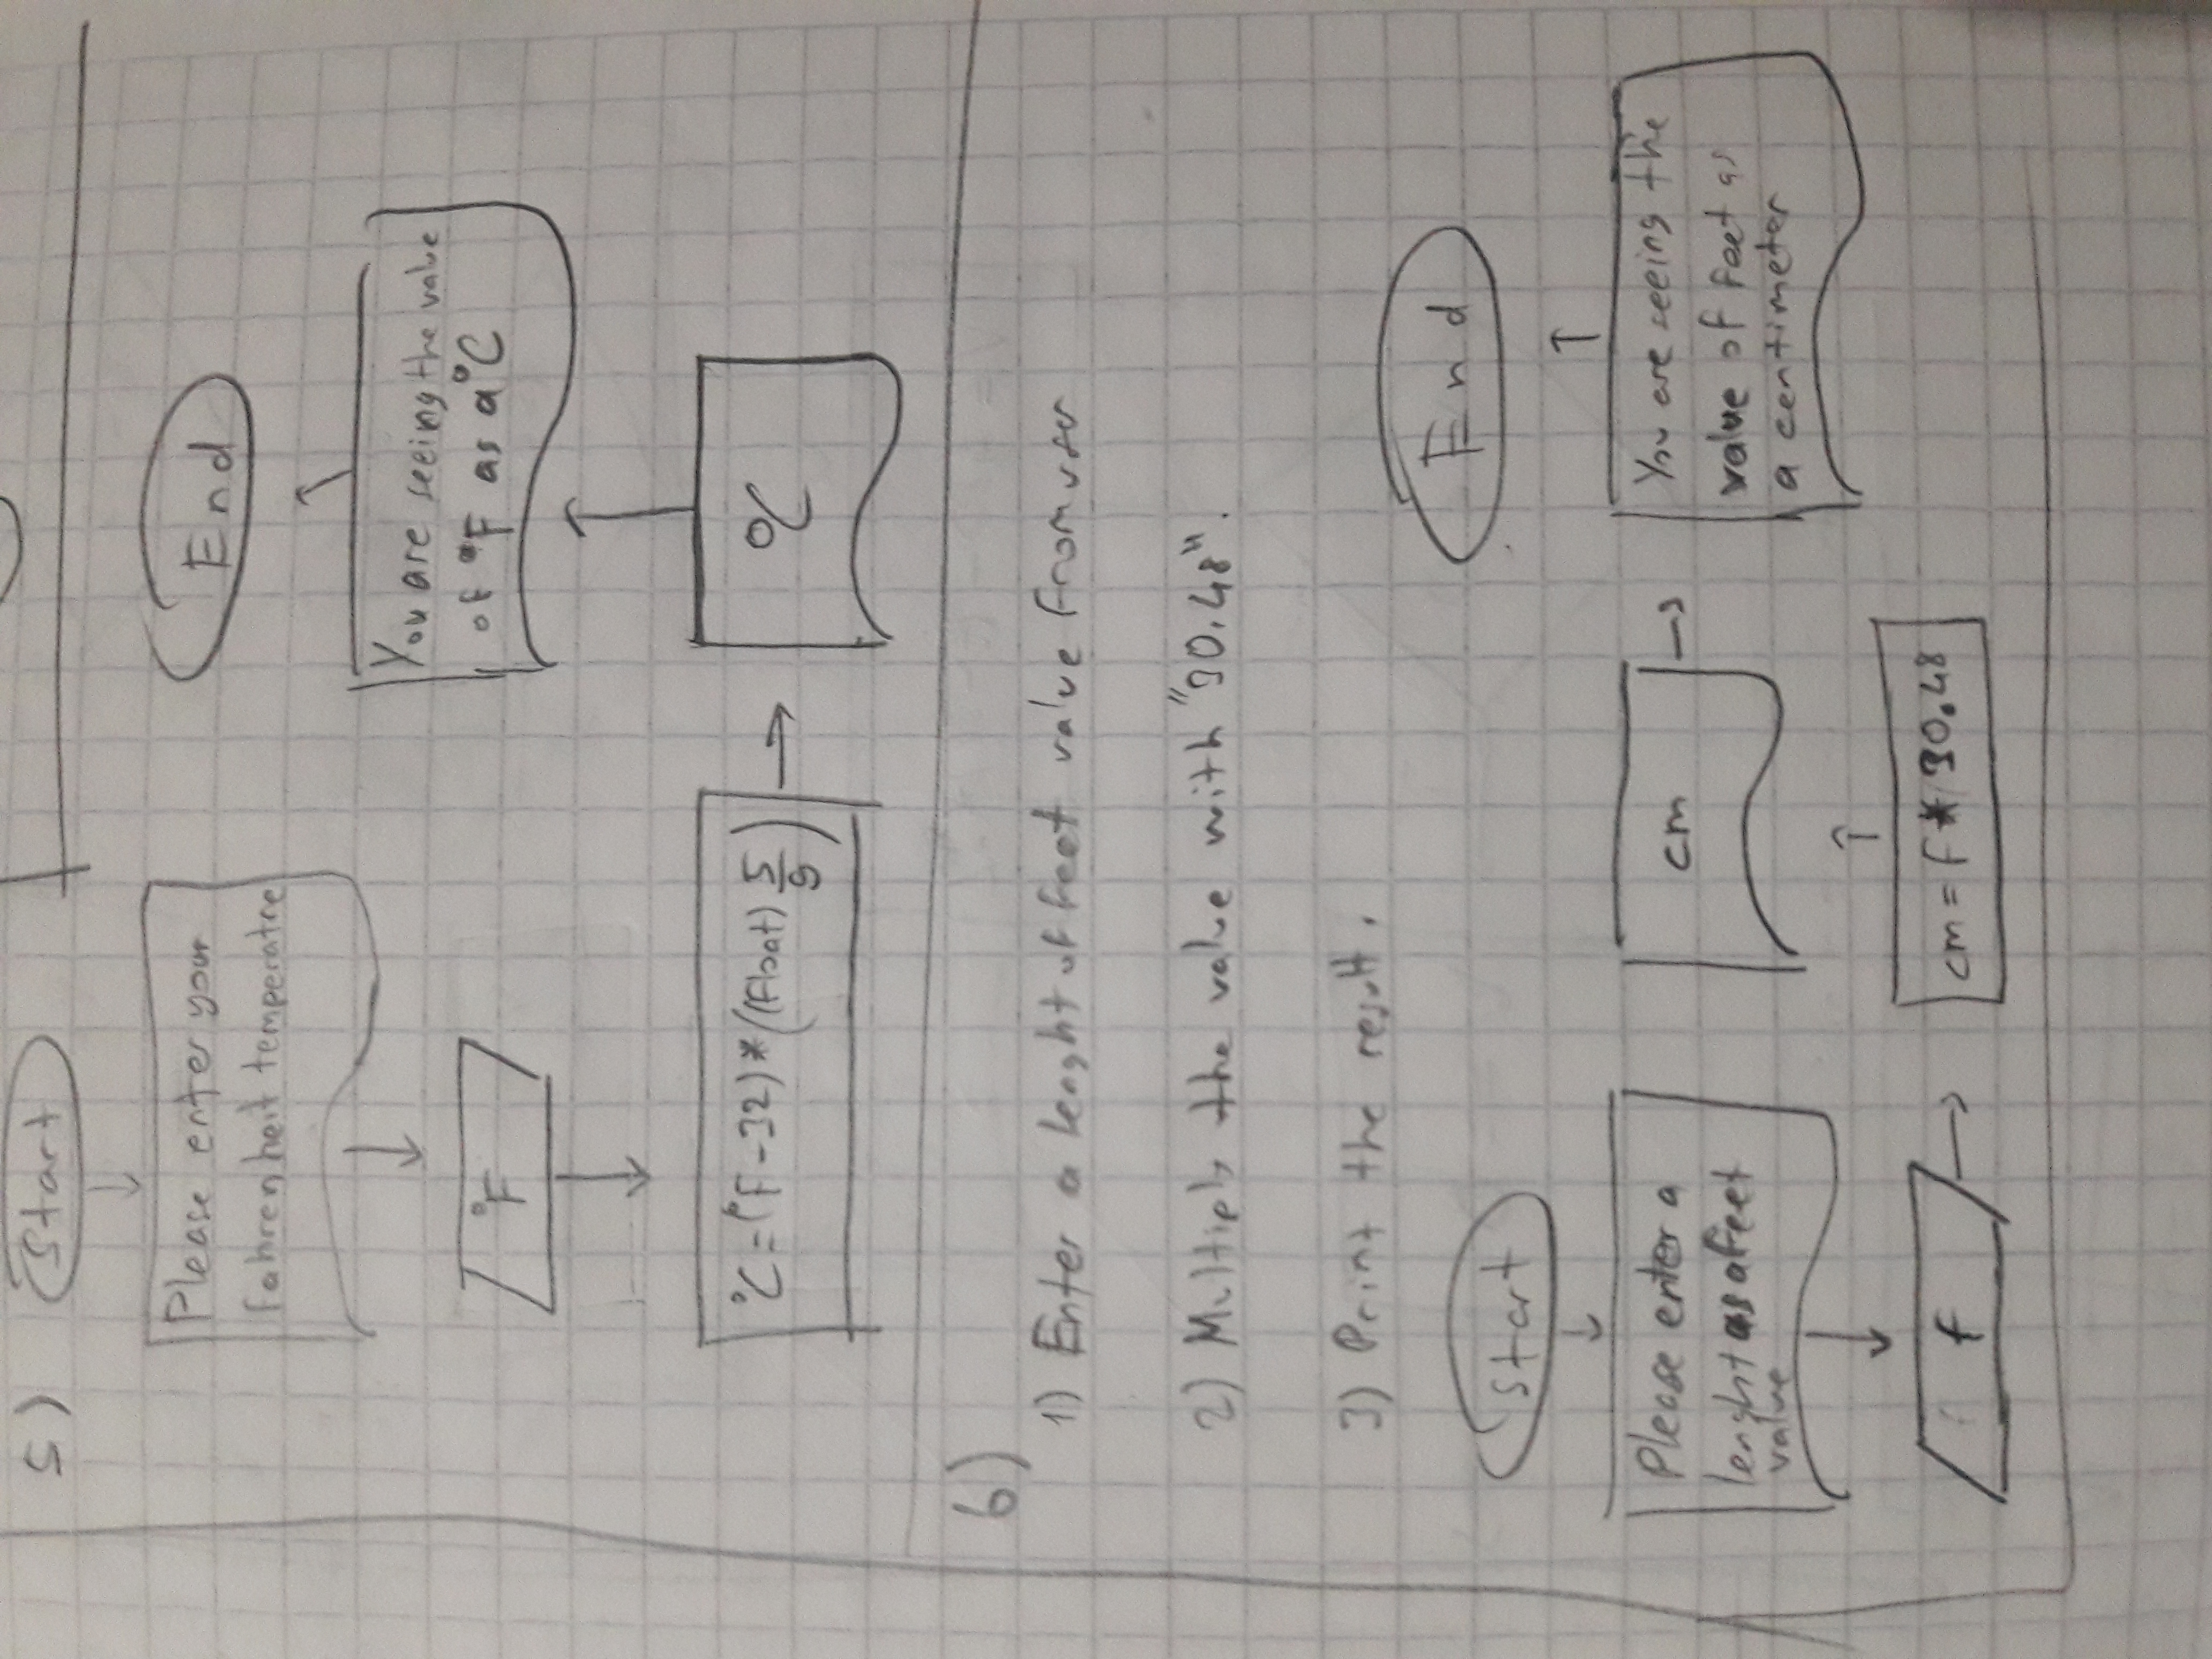 5)
Start
Please enter your
fahrenheit temperatre
°F
°C=(°F-32)*((float) 5/9)
°C
You are seeing the value
of °F as a °C
End
6)
1) Enter a lenght of feet value from user
2) Multiply the value with "30.48".
3) Print the result.
Start
Please enter a
lenght as a feet
value
f
cm = f * 30.48
cm
You are seeing the
value of feet as
a centimeter
End